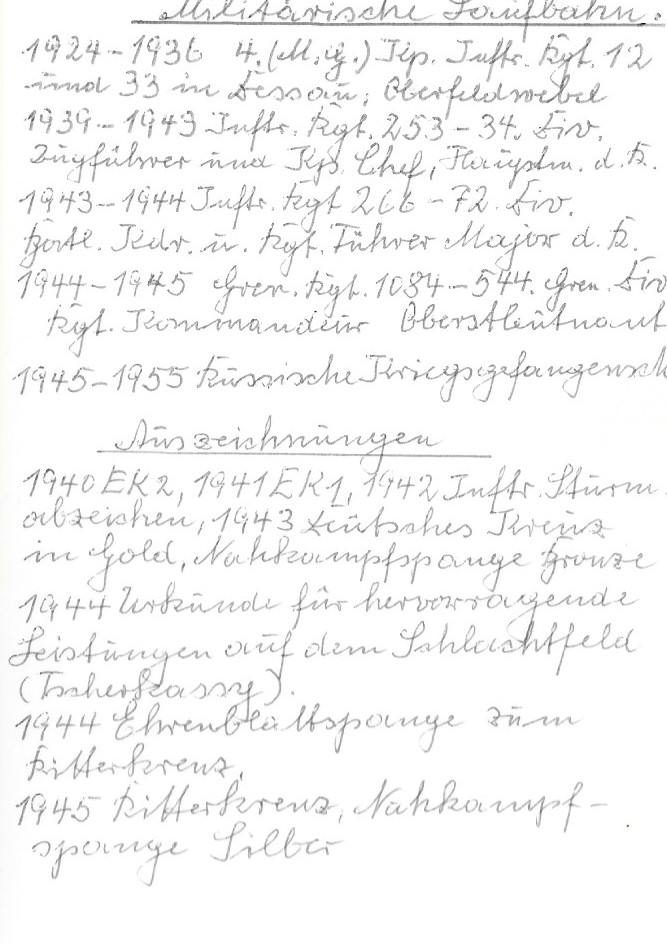 Militärische Laufbahn.
1924-1936 4.(M.G.) Kp. Inftr. Rgt. 12
und 33 in Dessau; Oberfeldwebel
1939-1943 Inftr. Rgt. 253-34. Div.
Zugführer und Kp. Chef, Hauptm. d. R.
1943-1944 Inftr. Rgt 266-72. Div.
Batl. Kdr. u. Rgt. Führer Major d. R.
1944-1945 Gren. Rgt. 1084-544. Gren. Div
Rgt. Kommandeur Oberstleutnant
1945-1955 Russische Kriegsgefangensch
Auszeichnungen
1940 EK2, 1941 EK1, 1942 Inftr. Sturm
abzeichen, 1943 Deutsches Kreuz
in Gold, Nahkampfspange Bronze
1944 Urkunde für hervorragende
Leistungen auf dem Schlachtfeld
(Tscherkassy).
1944 Ehrenblattspange zum
Ritterkreuz,
1945 Ritterkreuz, Nahkampf-
spange Silber